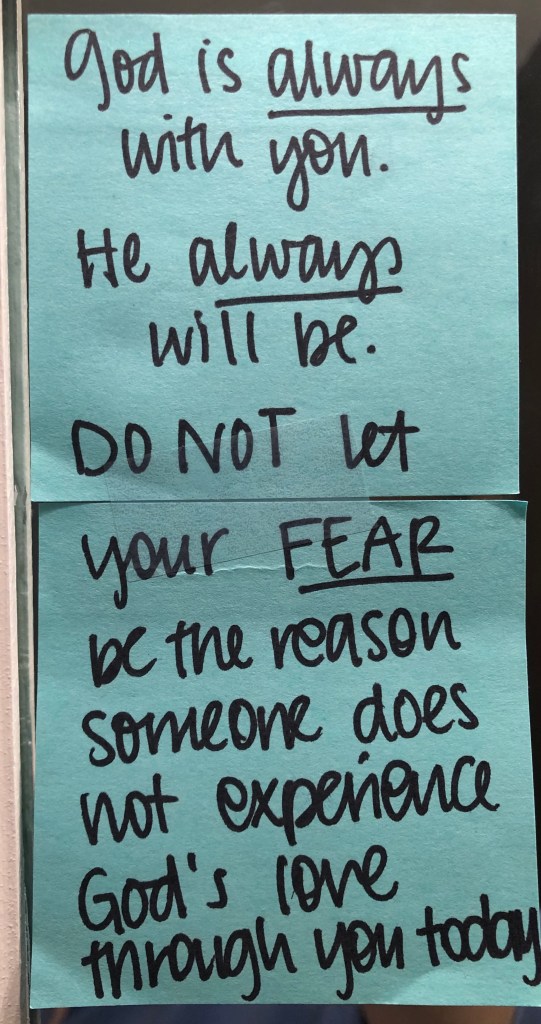 God is always
with you.
He always
will be.
DO NOT let
your FEAR
be the reason
someone does
not experience
God's love
through you today